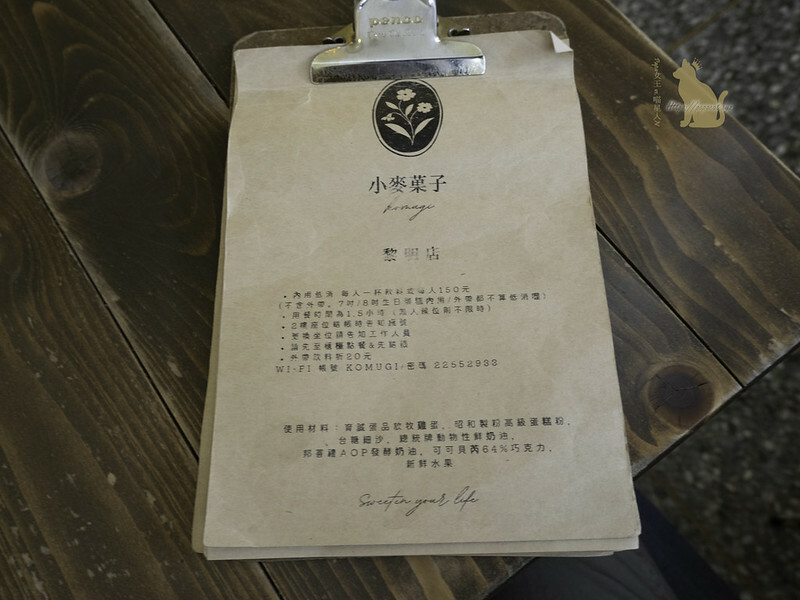 penco
小麥菓子
komugi
黎明店
• 內用低消 每人一杯飲料或每人150元
(不含外帶。7吋/8吋生日蛋糕內用/外帶都不算低消喔)
• 用餐時間為1.5小時 (無人候位則不限時)
• 2樓座位結帳時告知桌號
• 更換坐位請告知工作人員
• 請先至櫃檯點餐&先結帳
• 外帶飲料折20元
WI-FI 帳號 KOMUGI/密碼 22552933
使用材料：育誠蛋品放牧雞蛋，昭和製粉高級蛋糕粉，
台糖細沙，總統牌動物性鮮奶油，
邦喜禮AOP發酵奶油，可可貝芮64%巧克力，
新鮮水果
Sweeten your life
女王 x 喵星人